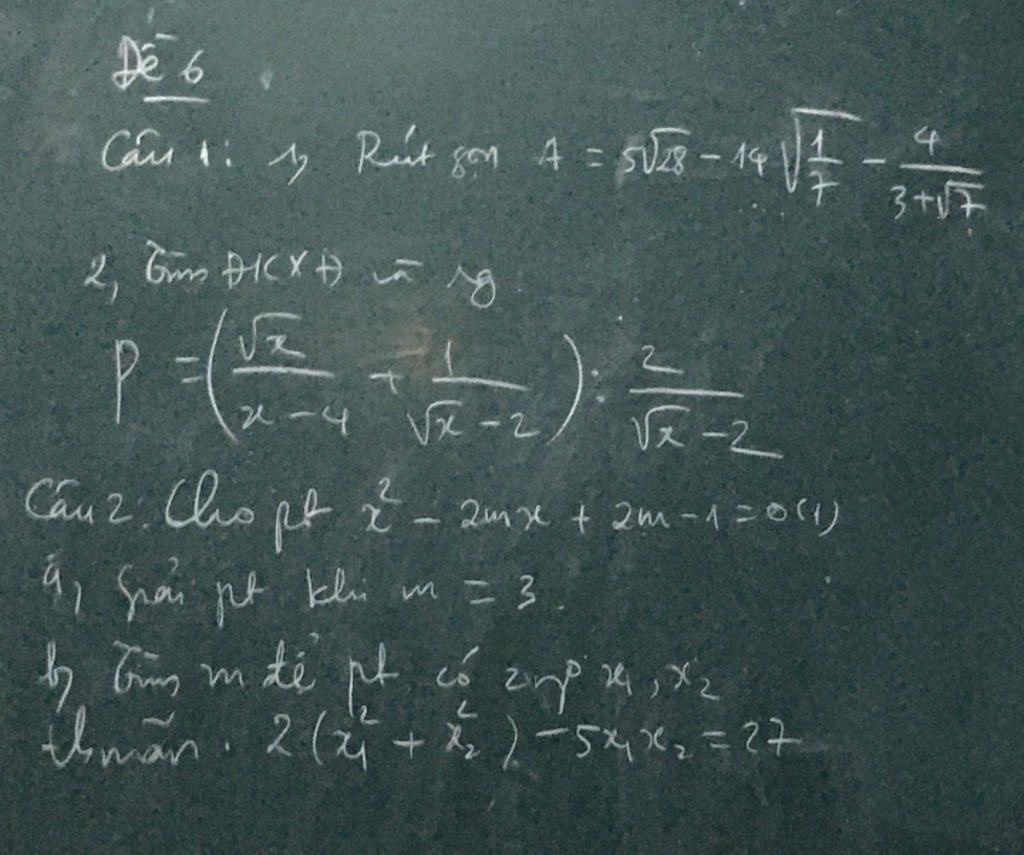 Đề 6
Câu 1: 1, Rút gọn A = 5√28 - 14√(1/7) - 4/(3+√7)
2, Tìm ĐKXĐ và rg
P = (√x/(x-4) + 1/(√x-2)) : 2/(√x-2)
Câu 2: Cho pt x² - 2mx + 2m - 1 = 0 (1)
a, Giải pt khi m = 3.
b, Tìm m để pt có 2 no x₁, x₂
th mãn. 2(x₁² + x₂²) - 5x₁x₂ = 27